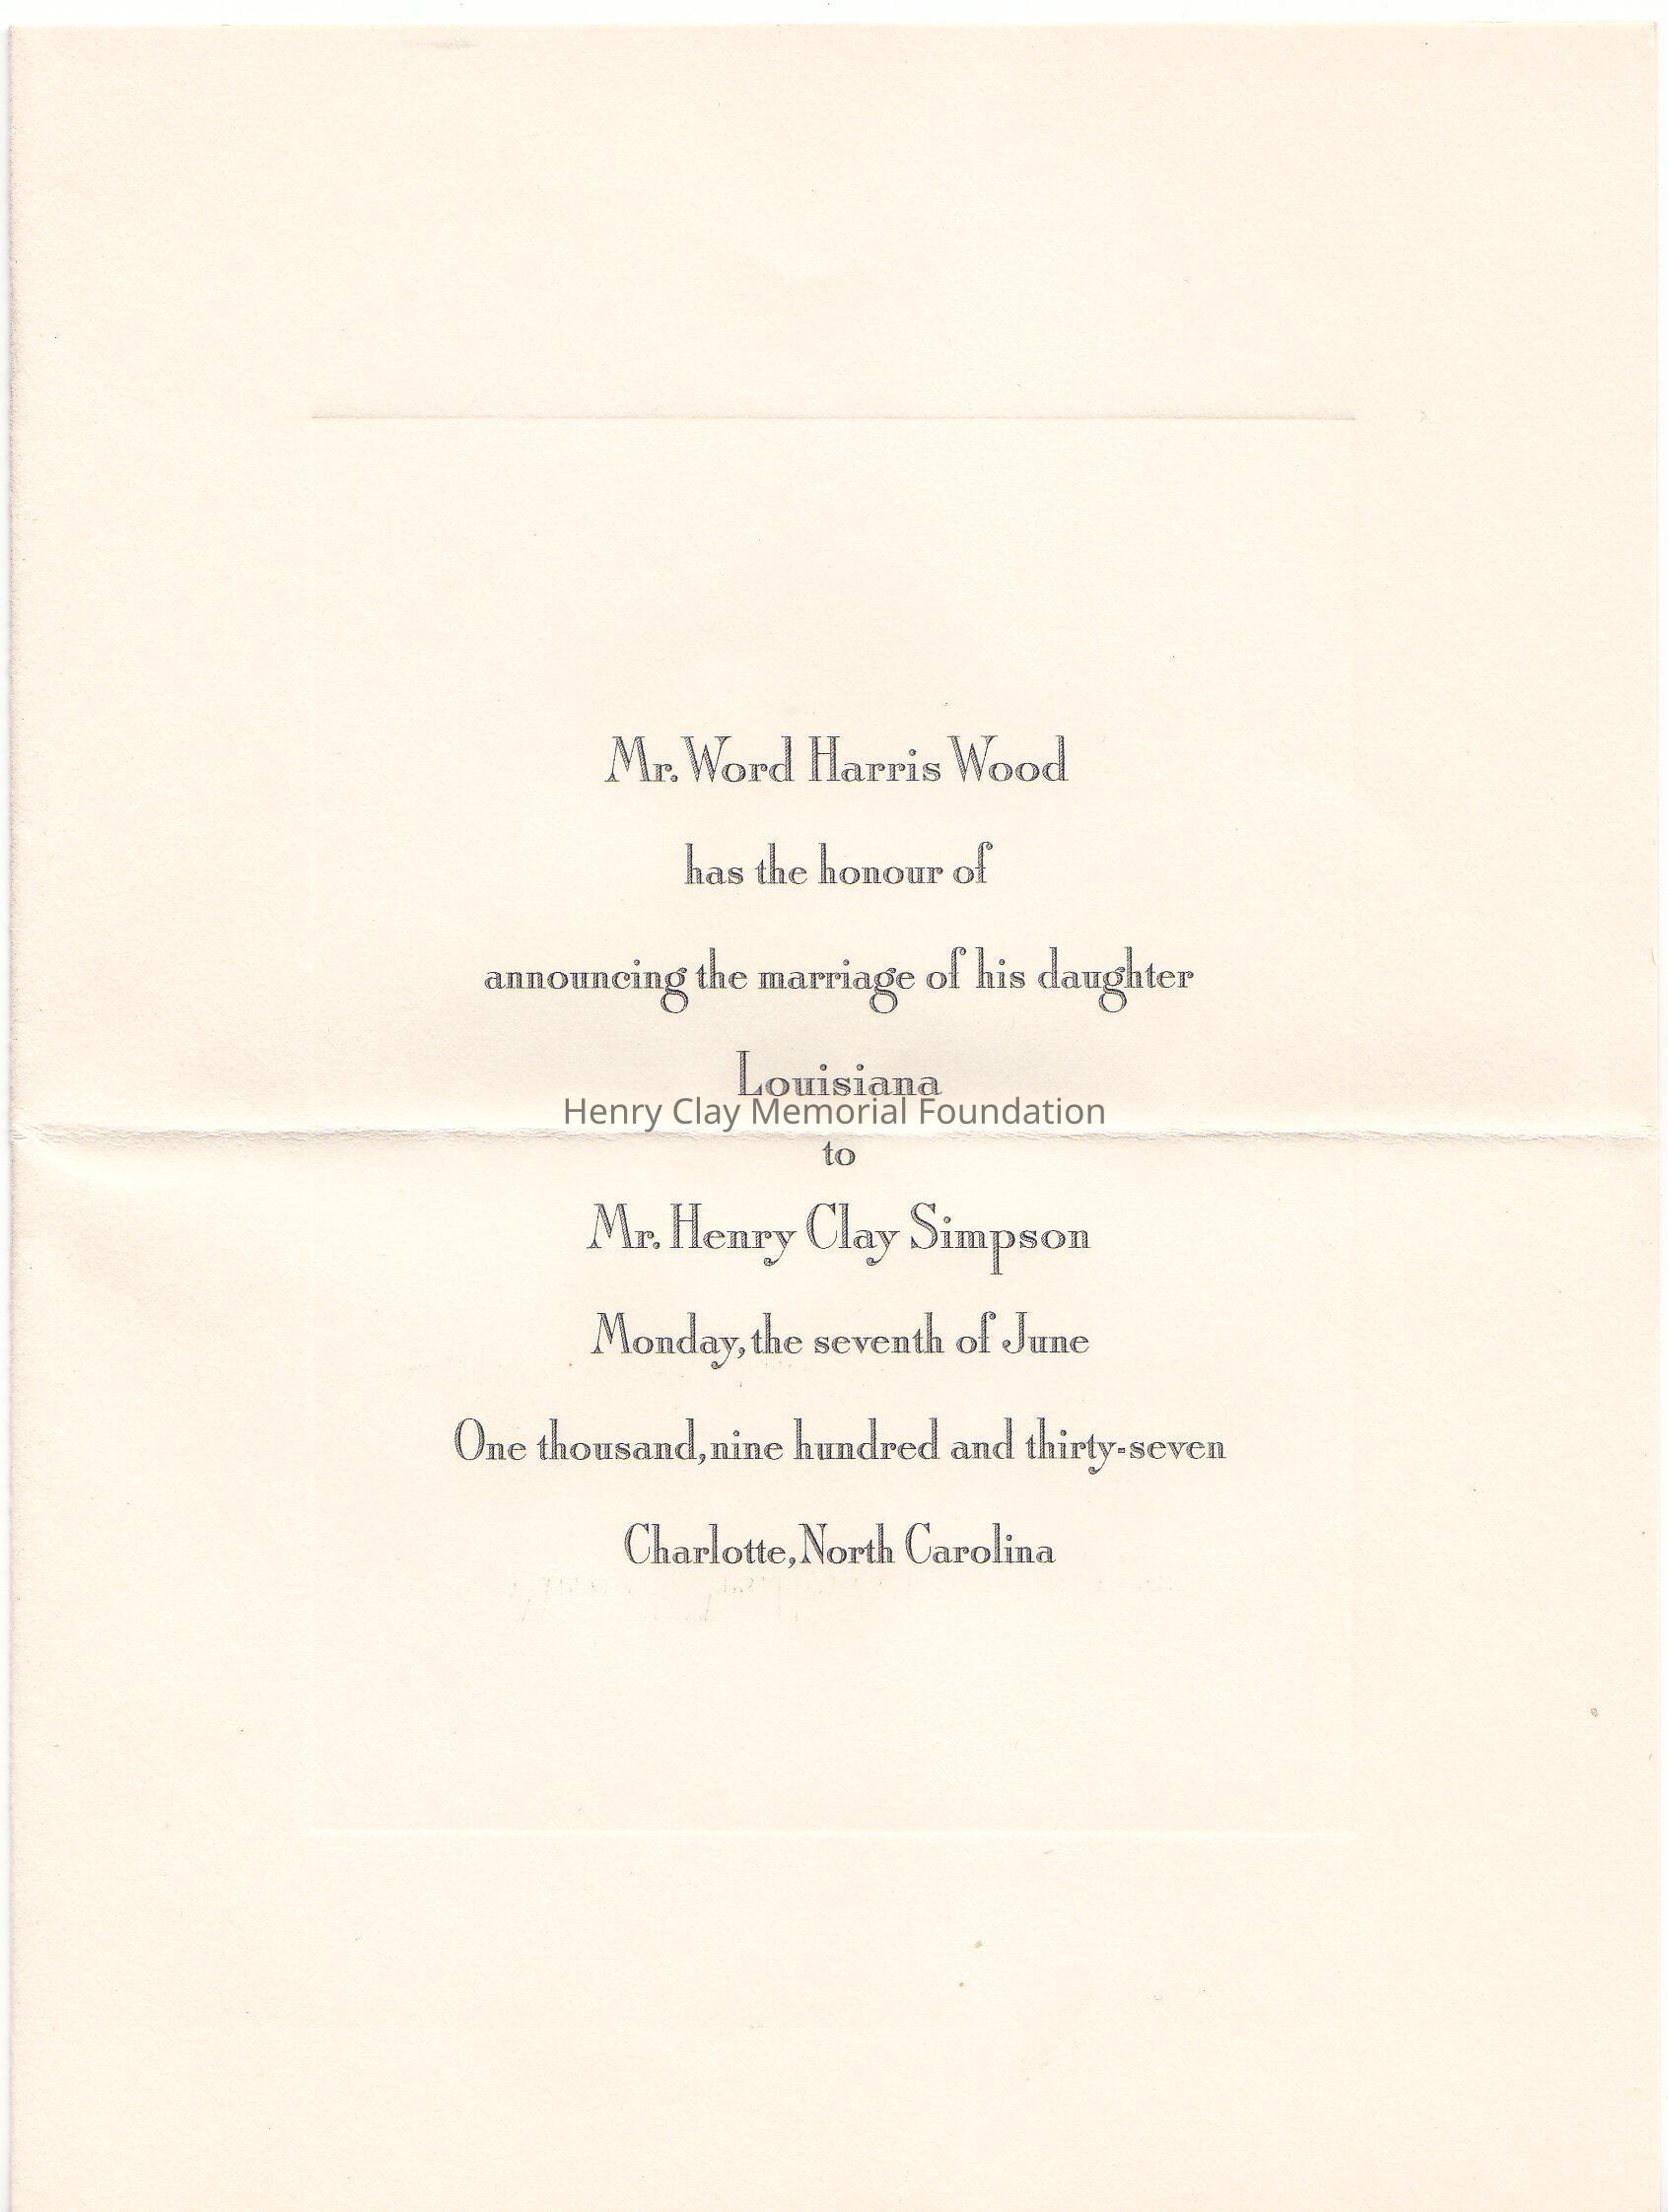 Mr. Word Harris Wood
has the honour of
announcing the marriage of his daughter
Louisiana
Henry Clay Memorial Foundation
to
Mr. Henry Clay Simpson
Monday, the seventh of June
One thousand, nine hundred and thirty-seven
Charlotte, North Carolina